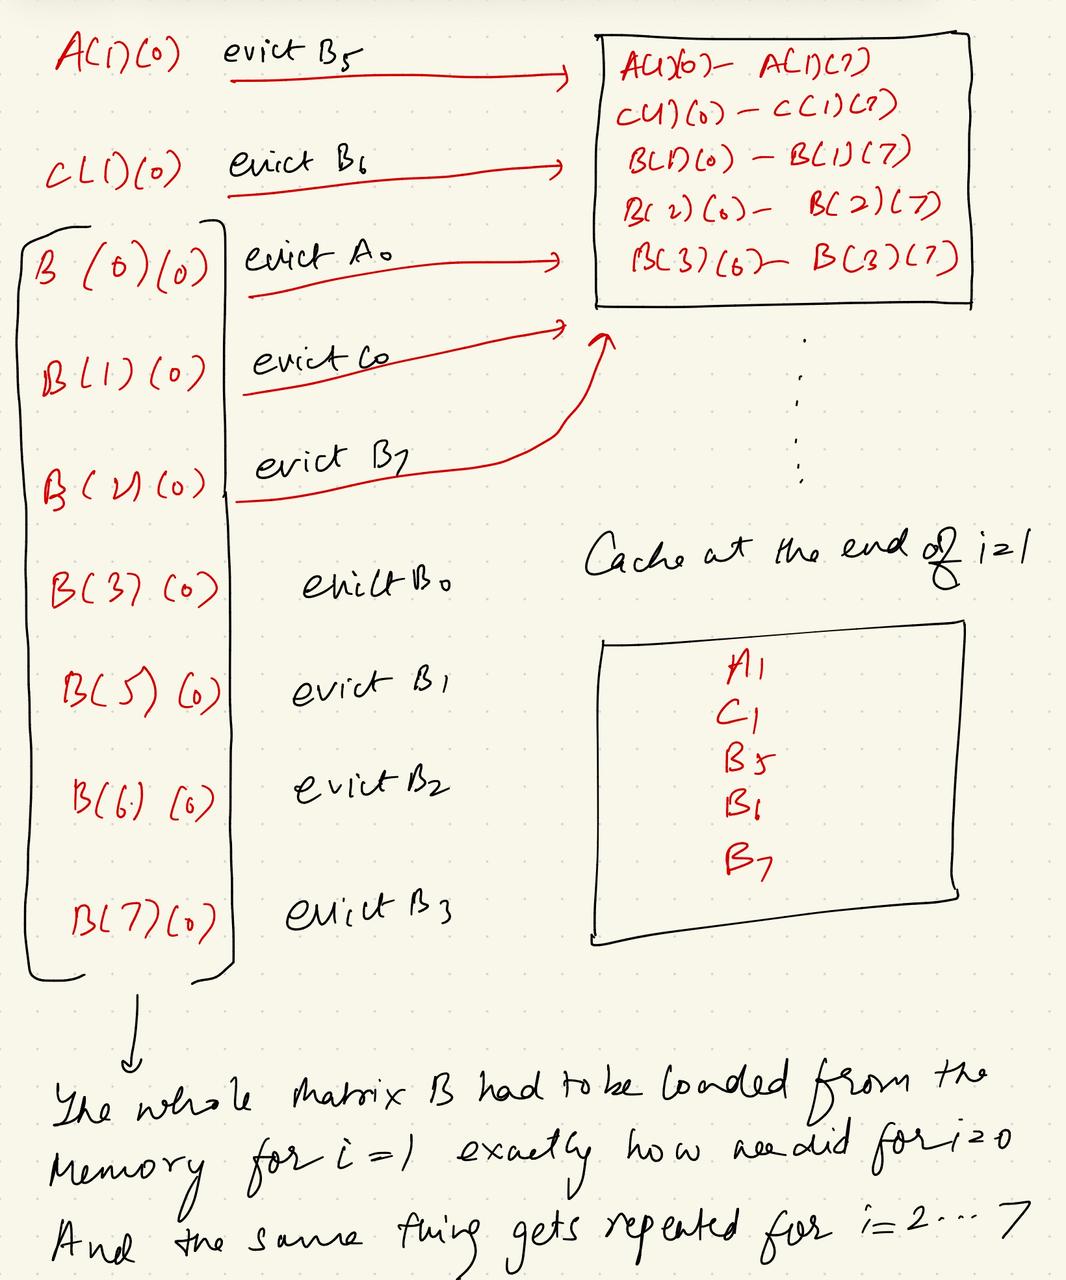 A(1)(0) evict B5
A(1)(0) - A(1)(7)
C(1)(0) - C(1)(7)
C(1)(0) evict B6
B(1)(0) - B(1)(7)
B(2)(0) - B(2)(7)
B(0)(0) evict A0
B(3)(0) - B(3)(7)
B(1)(0) evict C0
B(2)(0) evict B7
Cache at the end of i=1
B(3)(0) evict B0
A1
B(5)(0) evict B1
C1
B5
B(6)(0) evict B2
B6
B7
B(7)(0) evict B3
The whole Matrix B had to be loaded from the
Memory for i=1 exactly how we did for i=0
And the same thing gets repeated for i=2...7